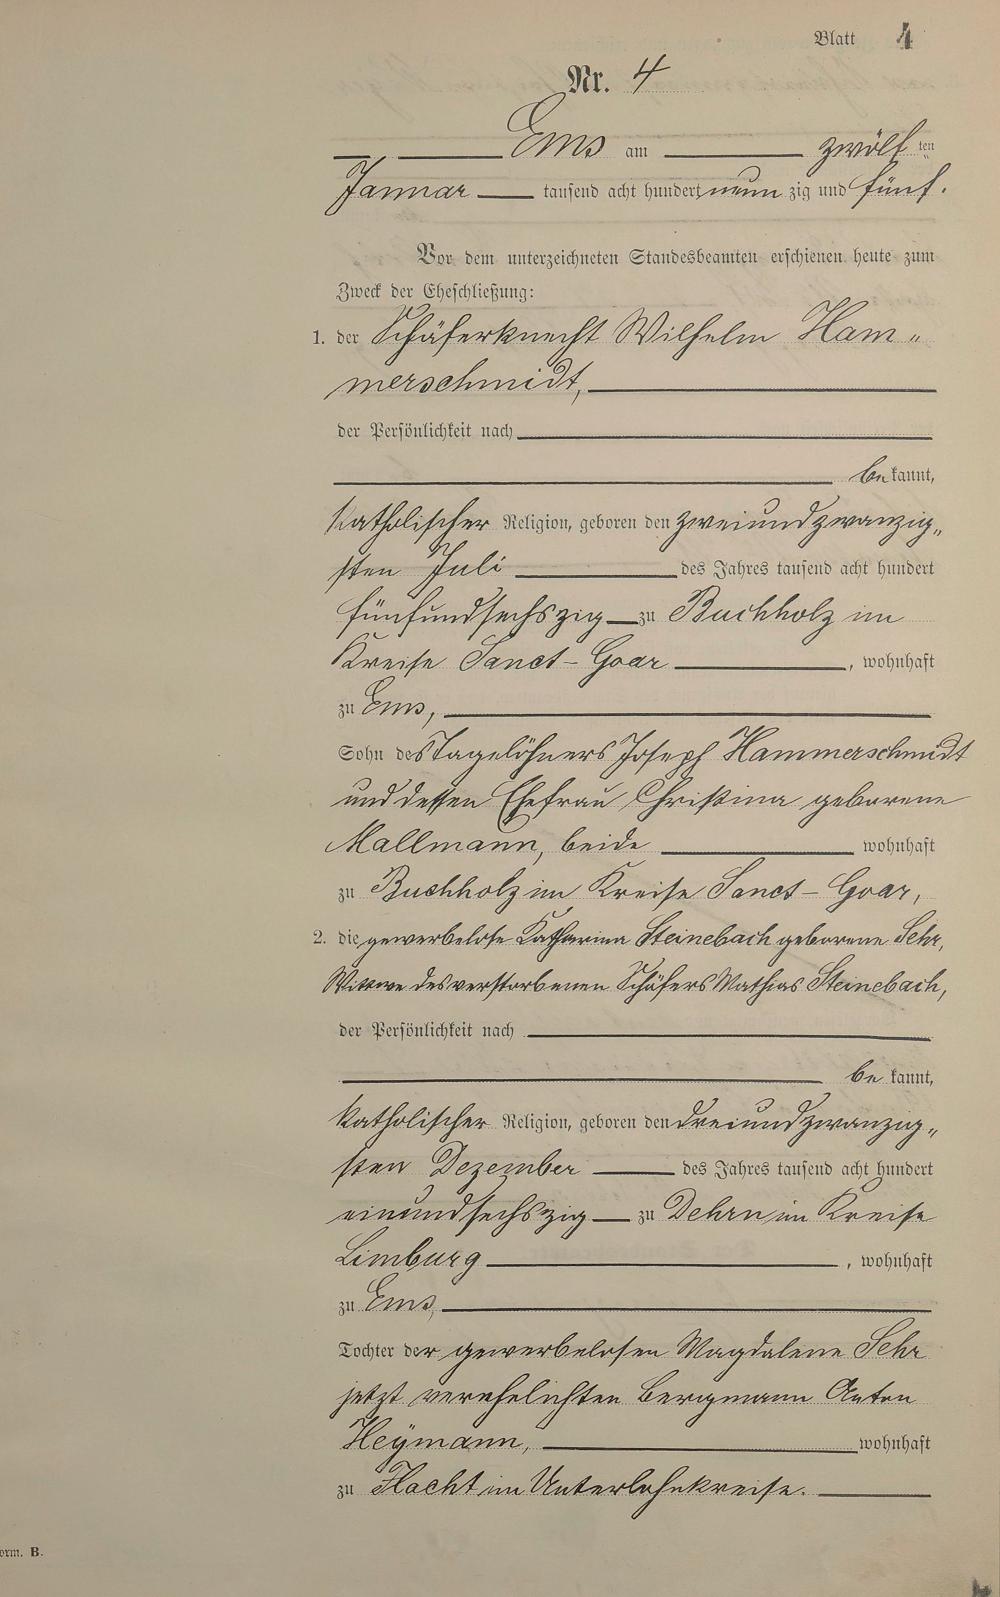 Blatt 4
Nr. 4
Ems am zwölf ten
Januar tausend acht hundert neun zig und fünf.
Vor dem unterzeichneten Standesbeamten erschienen heute zum
Zweck der Eheschließung:
1. der Schäferknecht Wilhelm Ham„
merschmidt,
der Persönlichkeit nach
be kannt,
katholischer Religion, geboren den zweiundzwanzig„
sten Juli des Jahres tausend acht hundert
fünfundsechszig zu Buchholz im
Kreise Sanct-Goar, wohnhaft
zu Ems,
Sohn des Tagelöhners Joseph Hammerschmidt
und dessen Ehefrau Christina geborene
Mallmann, beide wohnhaft
zu Buchholz im Kreise Sanct-Goar,
2. die gewerbelose Katharina Steinebach geborene Sehr,
Wittwe des verstorbenen Schäfers Mathias Steinebach,
der Persönlichkeit nach
be kannt,
katholischer Religion, geboren den dreiundzwanzig„
sten Dezember des Jahres tausend acht hundert
einundsechszig zu Dehrn im Kreise
Limburg, wohnhaft
zu Ems,
Tochter der gewerbelosen Magdalene Sehr
jetzt verehelichten Bergmann Anton
Heymann, wohnhaft
zu Flacht im Unterlahnkreise.
orm. B.